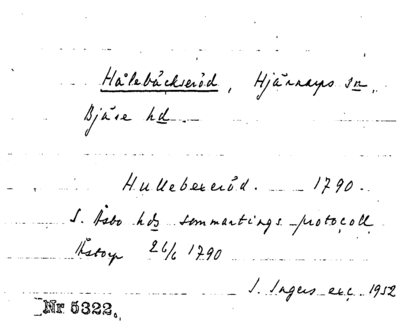 Hålebäckseröd, Hjärnarps sn,
Bjäre hd.
Hullebexeröd. 1790.
S. Åsbo hds sommartings-protocoll
Åstorp 26/6 1790
I. Ingers exc. 1952
Nr 5322.